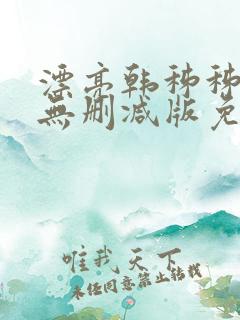 漂亮韩秭秭
無删减版免
唯我天下
未经同意禁止转载